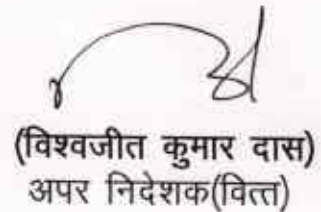 (विश्वजीत कुमार दास)
अपर निदेशक(वित्त)